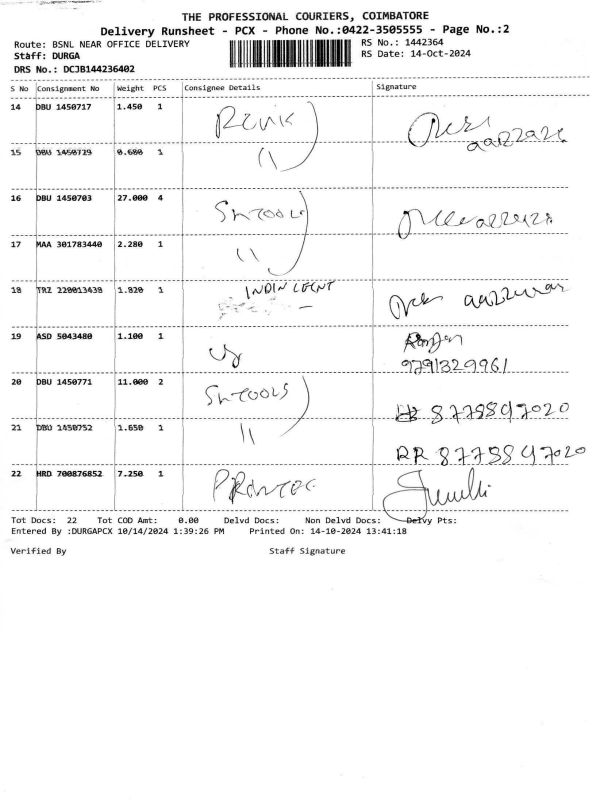 THE PROFESSIONAL COURIERS, COIMBATORE
Delivery Runsheet - PCX - Phone No.:0422-3505555 - Page No.:2
Route: BSNL NEAR OFFICE DELIVERY RS No.: 1442364
Staff: DURGA RS Date: 14-Oct-2024
DRS No.: DCJB144236402
S No Consignment No Weight PCS Consignee Details Signature
14 DBU 1450717 1.450 1
15 DBU 1450729 0.680 1
16 DBU 1450703 27.000 4 Sh TOOLS
17 MAA 301783440 2.280 1
18 TRZ 220013439 1.820 1
19 ASD 5043480 1.100 1
9791329961
20 DBU 1450771 11.000 2 Sh TOOLS 8778897020
21 DBU 1450752 1.650 1 RR 8778897020
22 HRD 700876852 7.250 1
Tot Docs: 22 Tot COD Amt: 0.00 Delvd Docs: Non Delvd Docs: Delvy Pts:
Entered By :DURGAPCX 10/14/2024 1:39:26 PM Printed On: 14-10-2024 13:41:18
Verified By Staff Signature